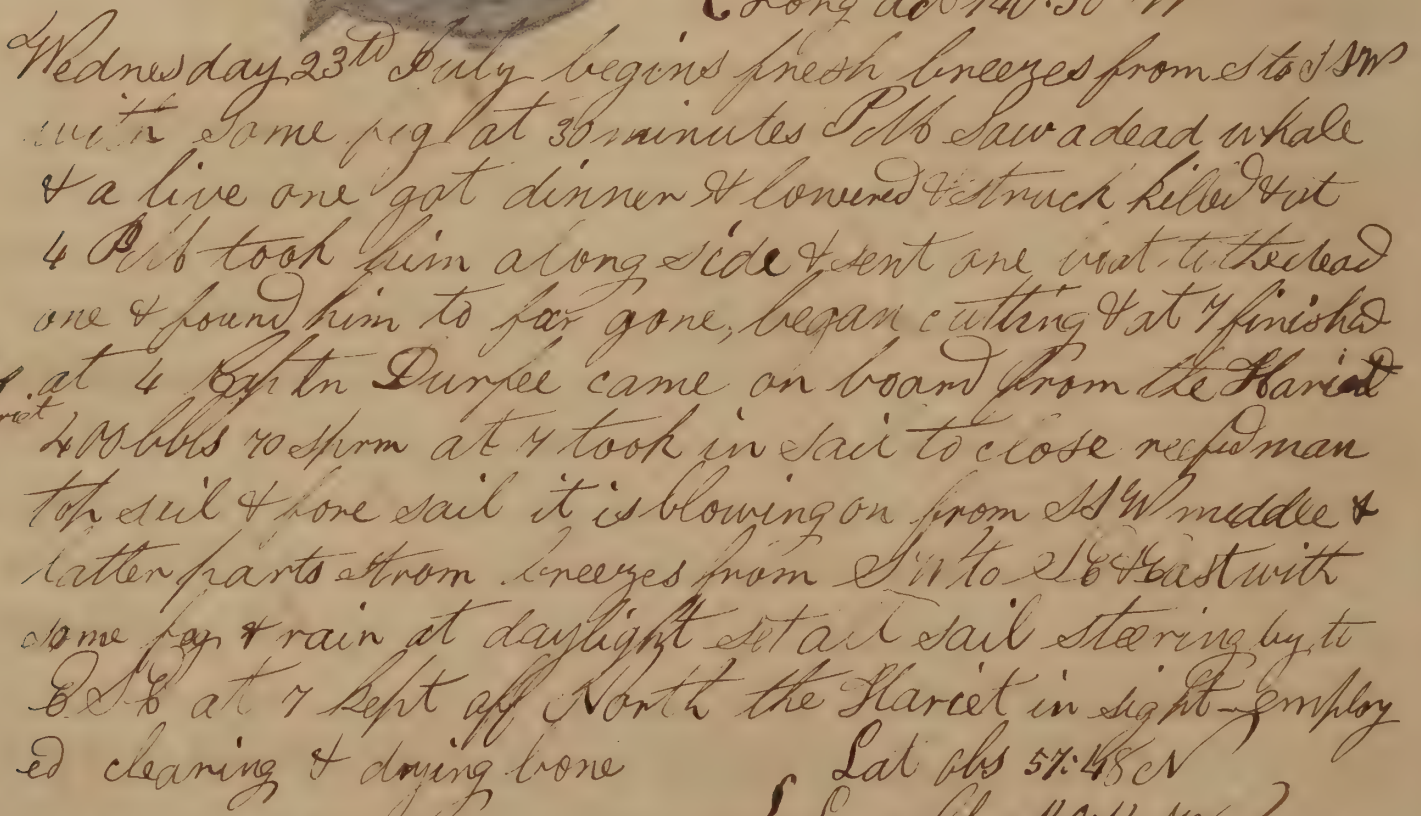 Long 140.50 W
Wednesday 23td July begins fresh breezes from S to SSW
with some fog at 30 minutes PM saw a dead whale
& a live one got dinner & lowered & struck killed & at
4 PM took him along side & sent one boat to the dead
one & found him to far gone, began cutting & at 7 finished
at 4 Captn Durfee came on board from the Hariet
400 bbls 70 sprm at 7 took in sail to close reefed man
top sail & fore sail it is blowing on from SSW middle &
latter parts strom breezes from SW to SE & East with
some fog & rain at daylight set all sail steering by to
ESE at 7 kept off North the Hariet in sight - employ
ed cleaning & drying bone Lat obs 57:48 N